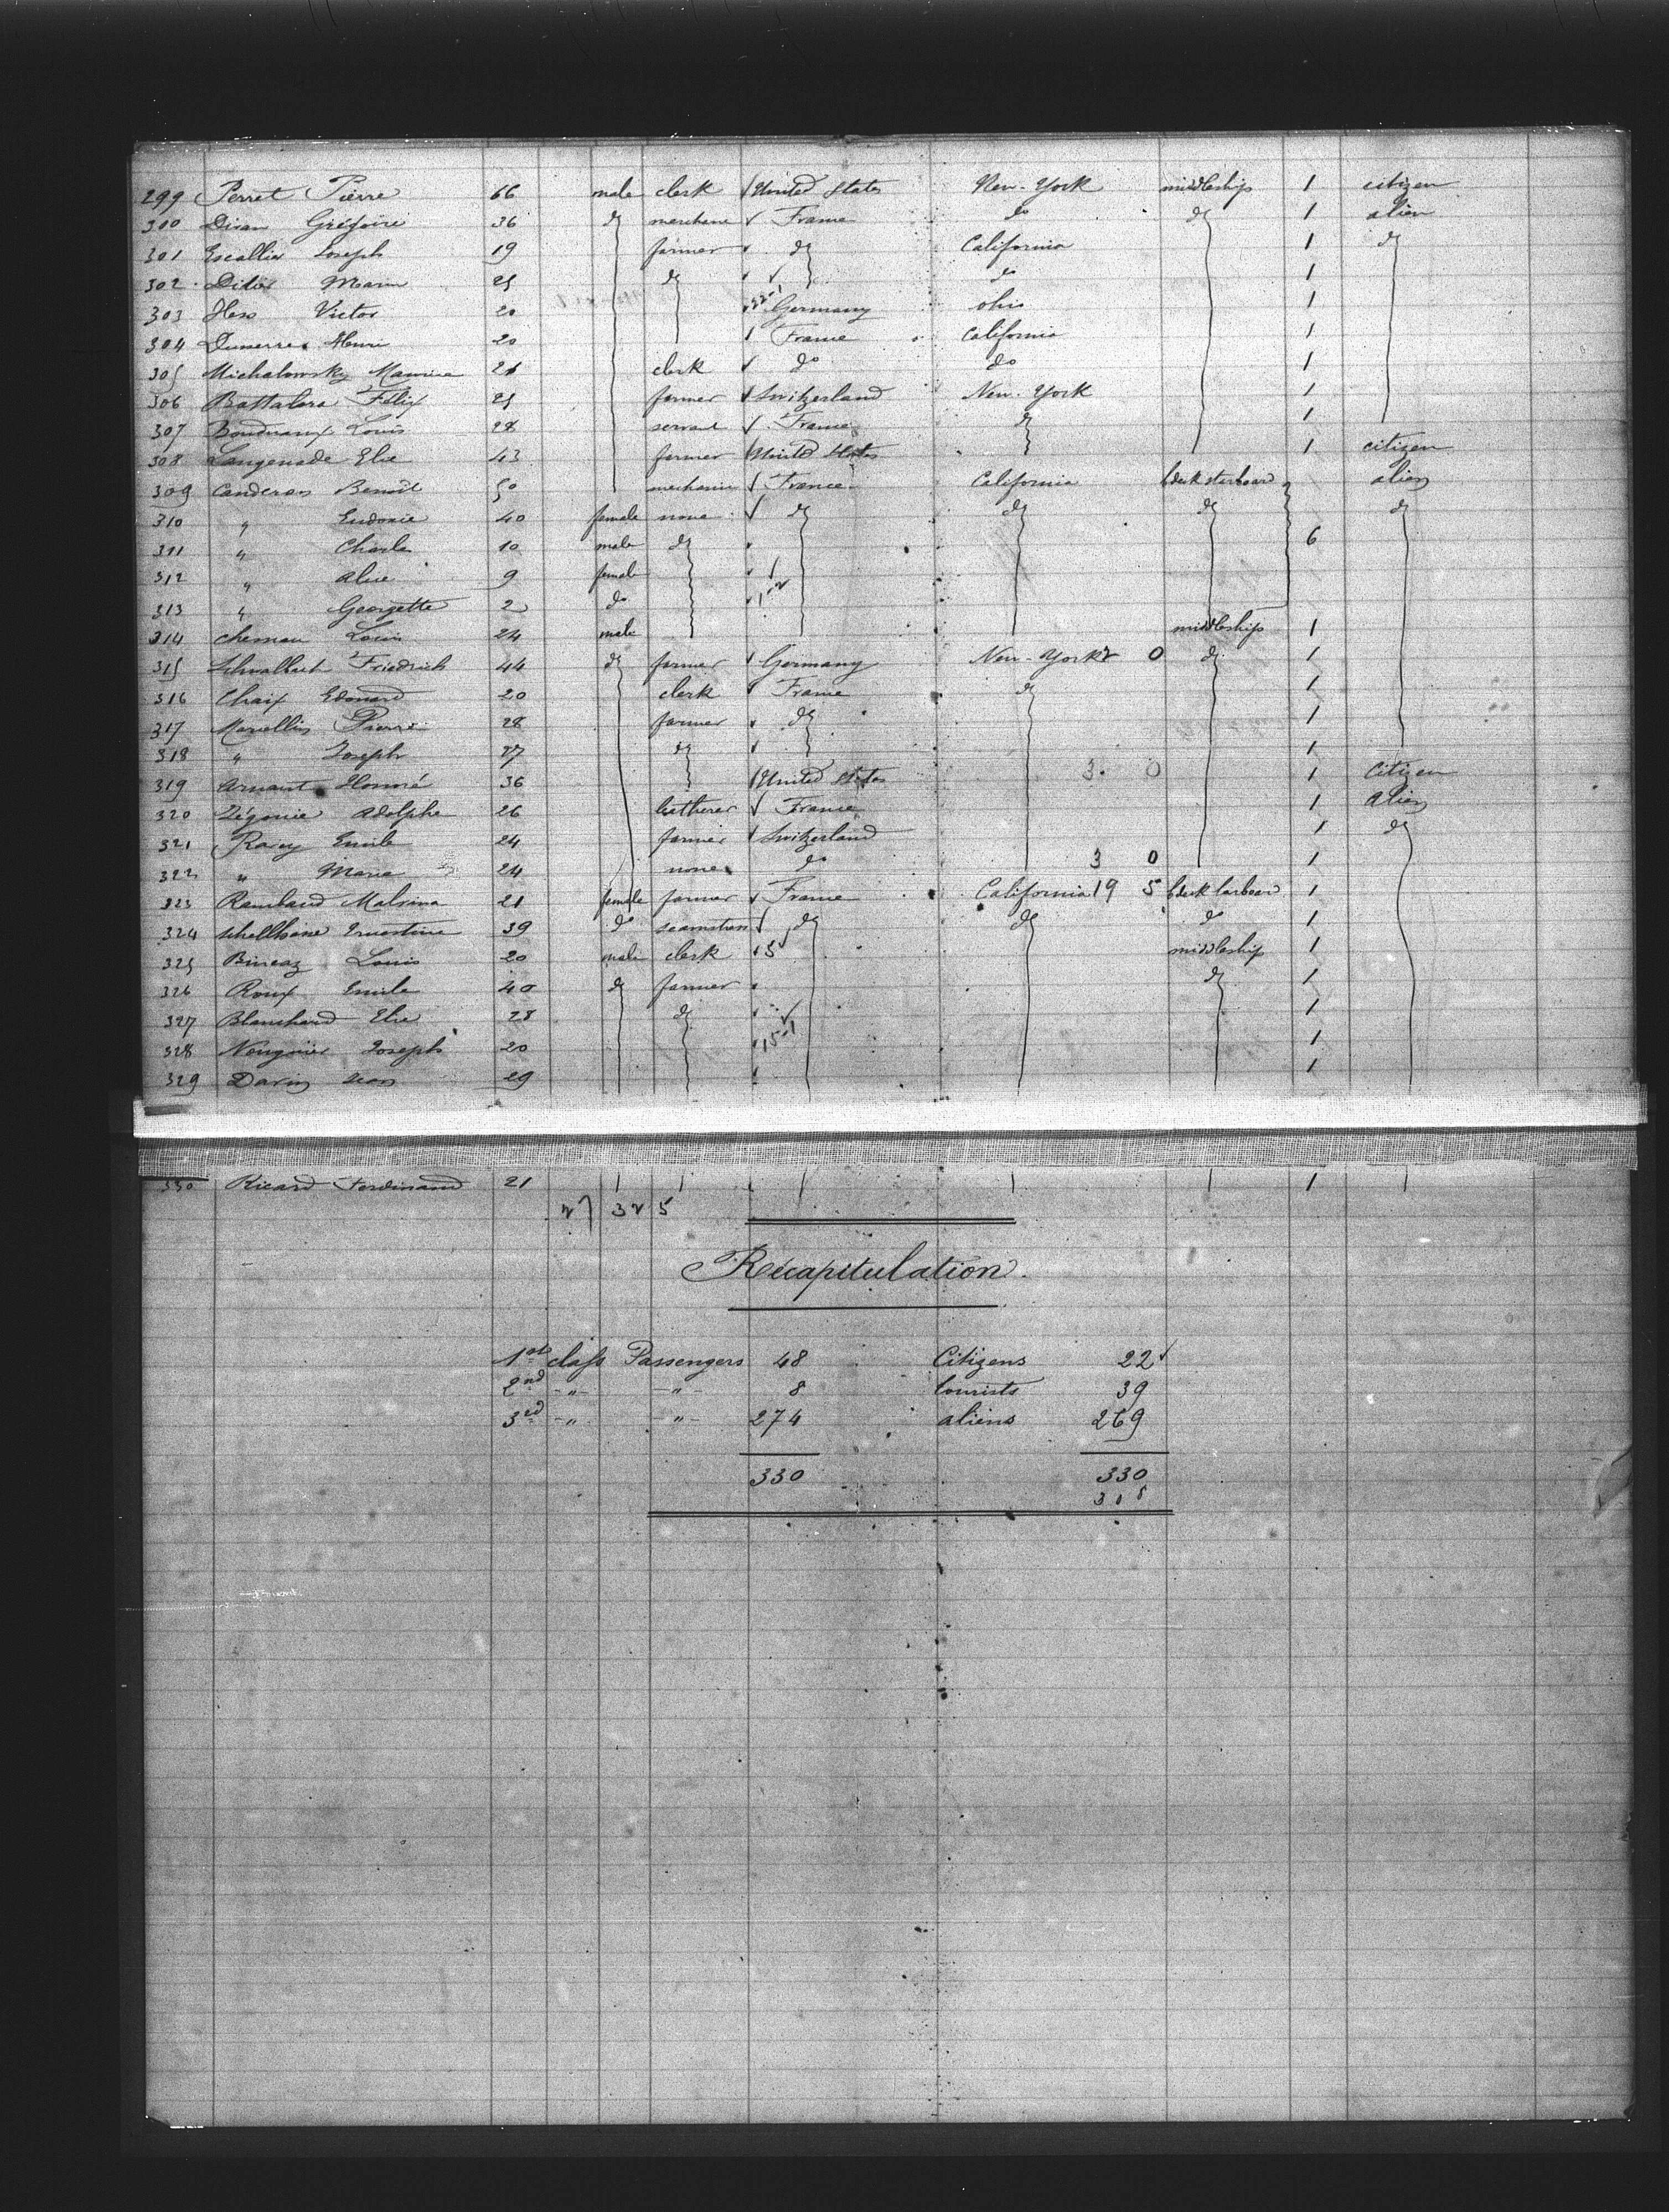 299 Perret Pierre 66 male clerk United States New-York middleship 1 citizen
300 Divan Grégoire 36 do France do do 1 alien
301 Escallier Joseph 19 farmer do California 1 do
302 Marin 25 do do 1
303 Hess Victor 20 Germany ohio 1
304 Henri 20 France California 1
305 Michalowsky Maurice 21 clerk do do 1
306 Battalora Félix 25 farmer Switzerland New-York 1
307 Louis 28 servant France do 1
308 Langenade Elie 43 farmer United States 1 citizen
309 Canderan Benoit 50 mechanic France California deck starboard alien
310 " Eudoxie 40 female none do do do do
311 " Charle 10 male do 6
312 " Alice 9 female
313 " Georgette 2 do
314 Louis 24 male middleship 1
315 Friedrich 44 do farmer Germany New-York 2 0 do 1
316 Chaix Edouard 20 clerk France do 1
317 Pierre 28 farmer do 1
318 " Joseph 27 do 1
319 Arnaut Honoré 36 United States 3 0 1 Citizen
320 Zégonie Adolphe 26 France 1 Alien
321 Ravey Emile 24 farmer Switzerland 1 do
322 " Marie 24 none do 3 0 1
323 Rambaud Malvina 21 female farmer France California 19 5 deck larboard 1
324 Ernestine 39 do seamstress do do do 1
325 Louis 20 male clerk 5 middleship 1
326 Roux Emile 40 do farmer do 1
327 Blanchard Elie 28 do 1
328 Joseph 20 15-1 1
329 Davin 29 1
330 Ricard Ferdinand 21 1
27 325
Recapitulation.
1st class Passengers 48 Citizens 22
2nd -"- -"- 8 tourists 39
3rd -"- -"- 274 aliens 269
330 330
308